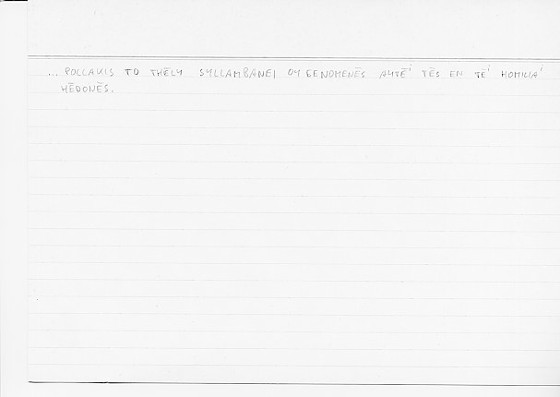 ... POLLAKIS TO THĒLY SYLLAMBANEI OY GENOMENĒS AYTĒ' TĒS EN TĒ' HOMILIA'
HĒDONĒS.